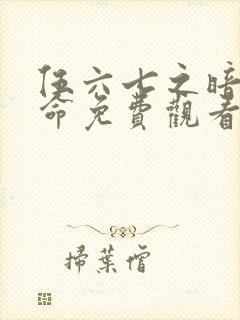 伍六七之暗
命免費觀看
掃葉僧